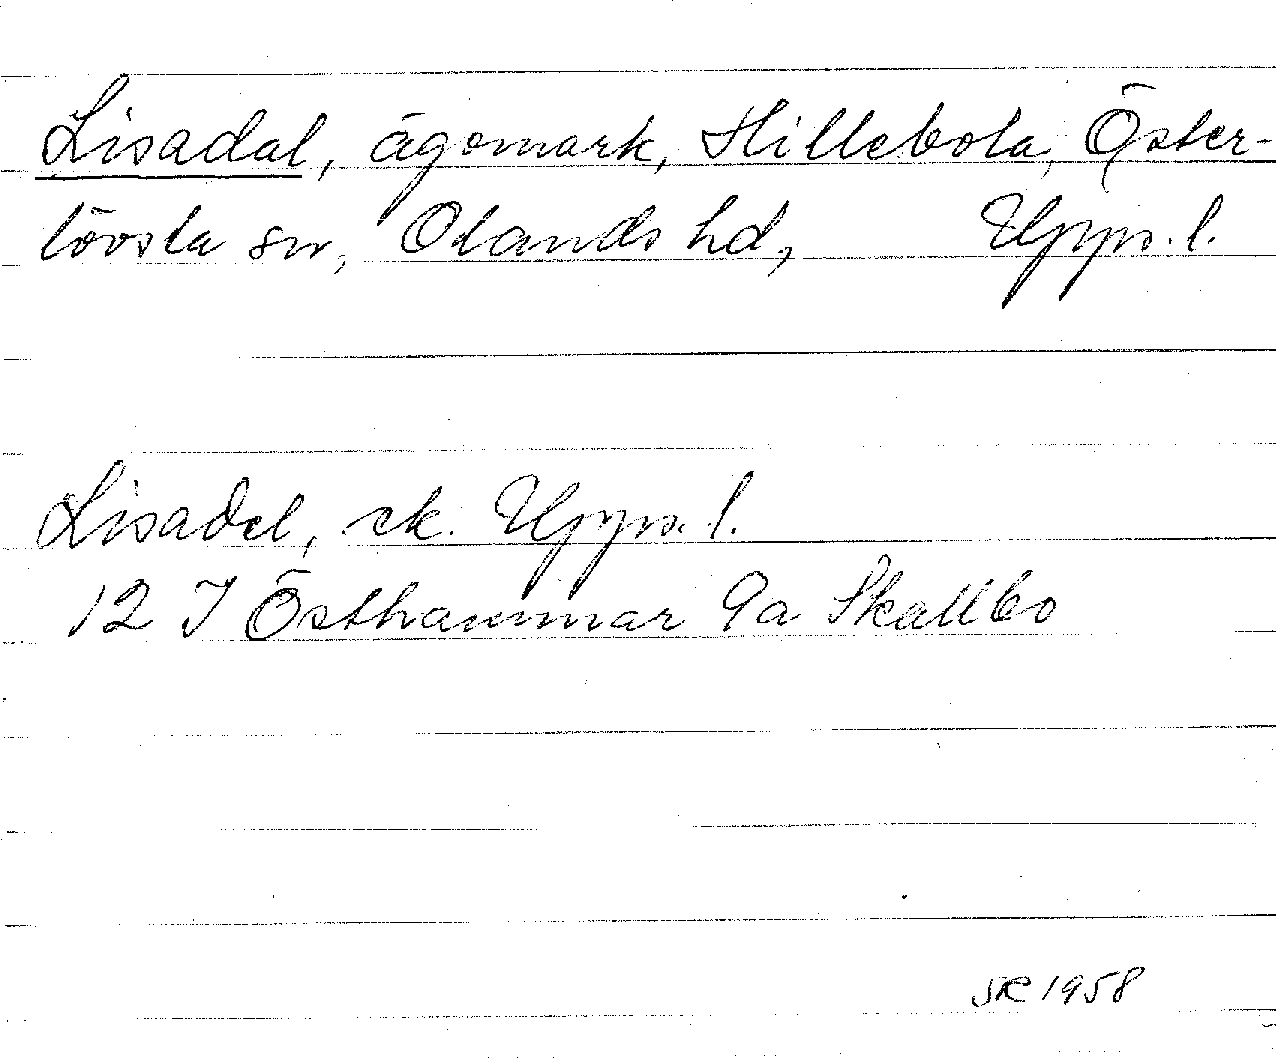 Lisadal, ägomark, Hillebola, Öster-
lövsta sn, Olands hd, Upps. l.
Lisadal, ek. Upps. l.
12 I Östhammar 9a Skallbo
SR 1958